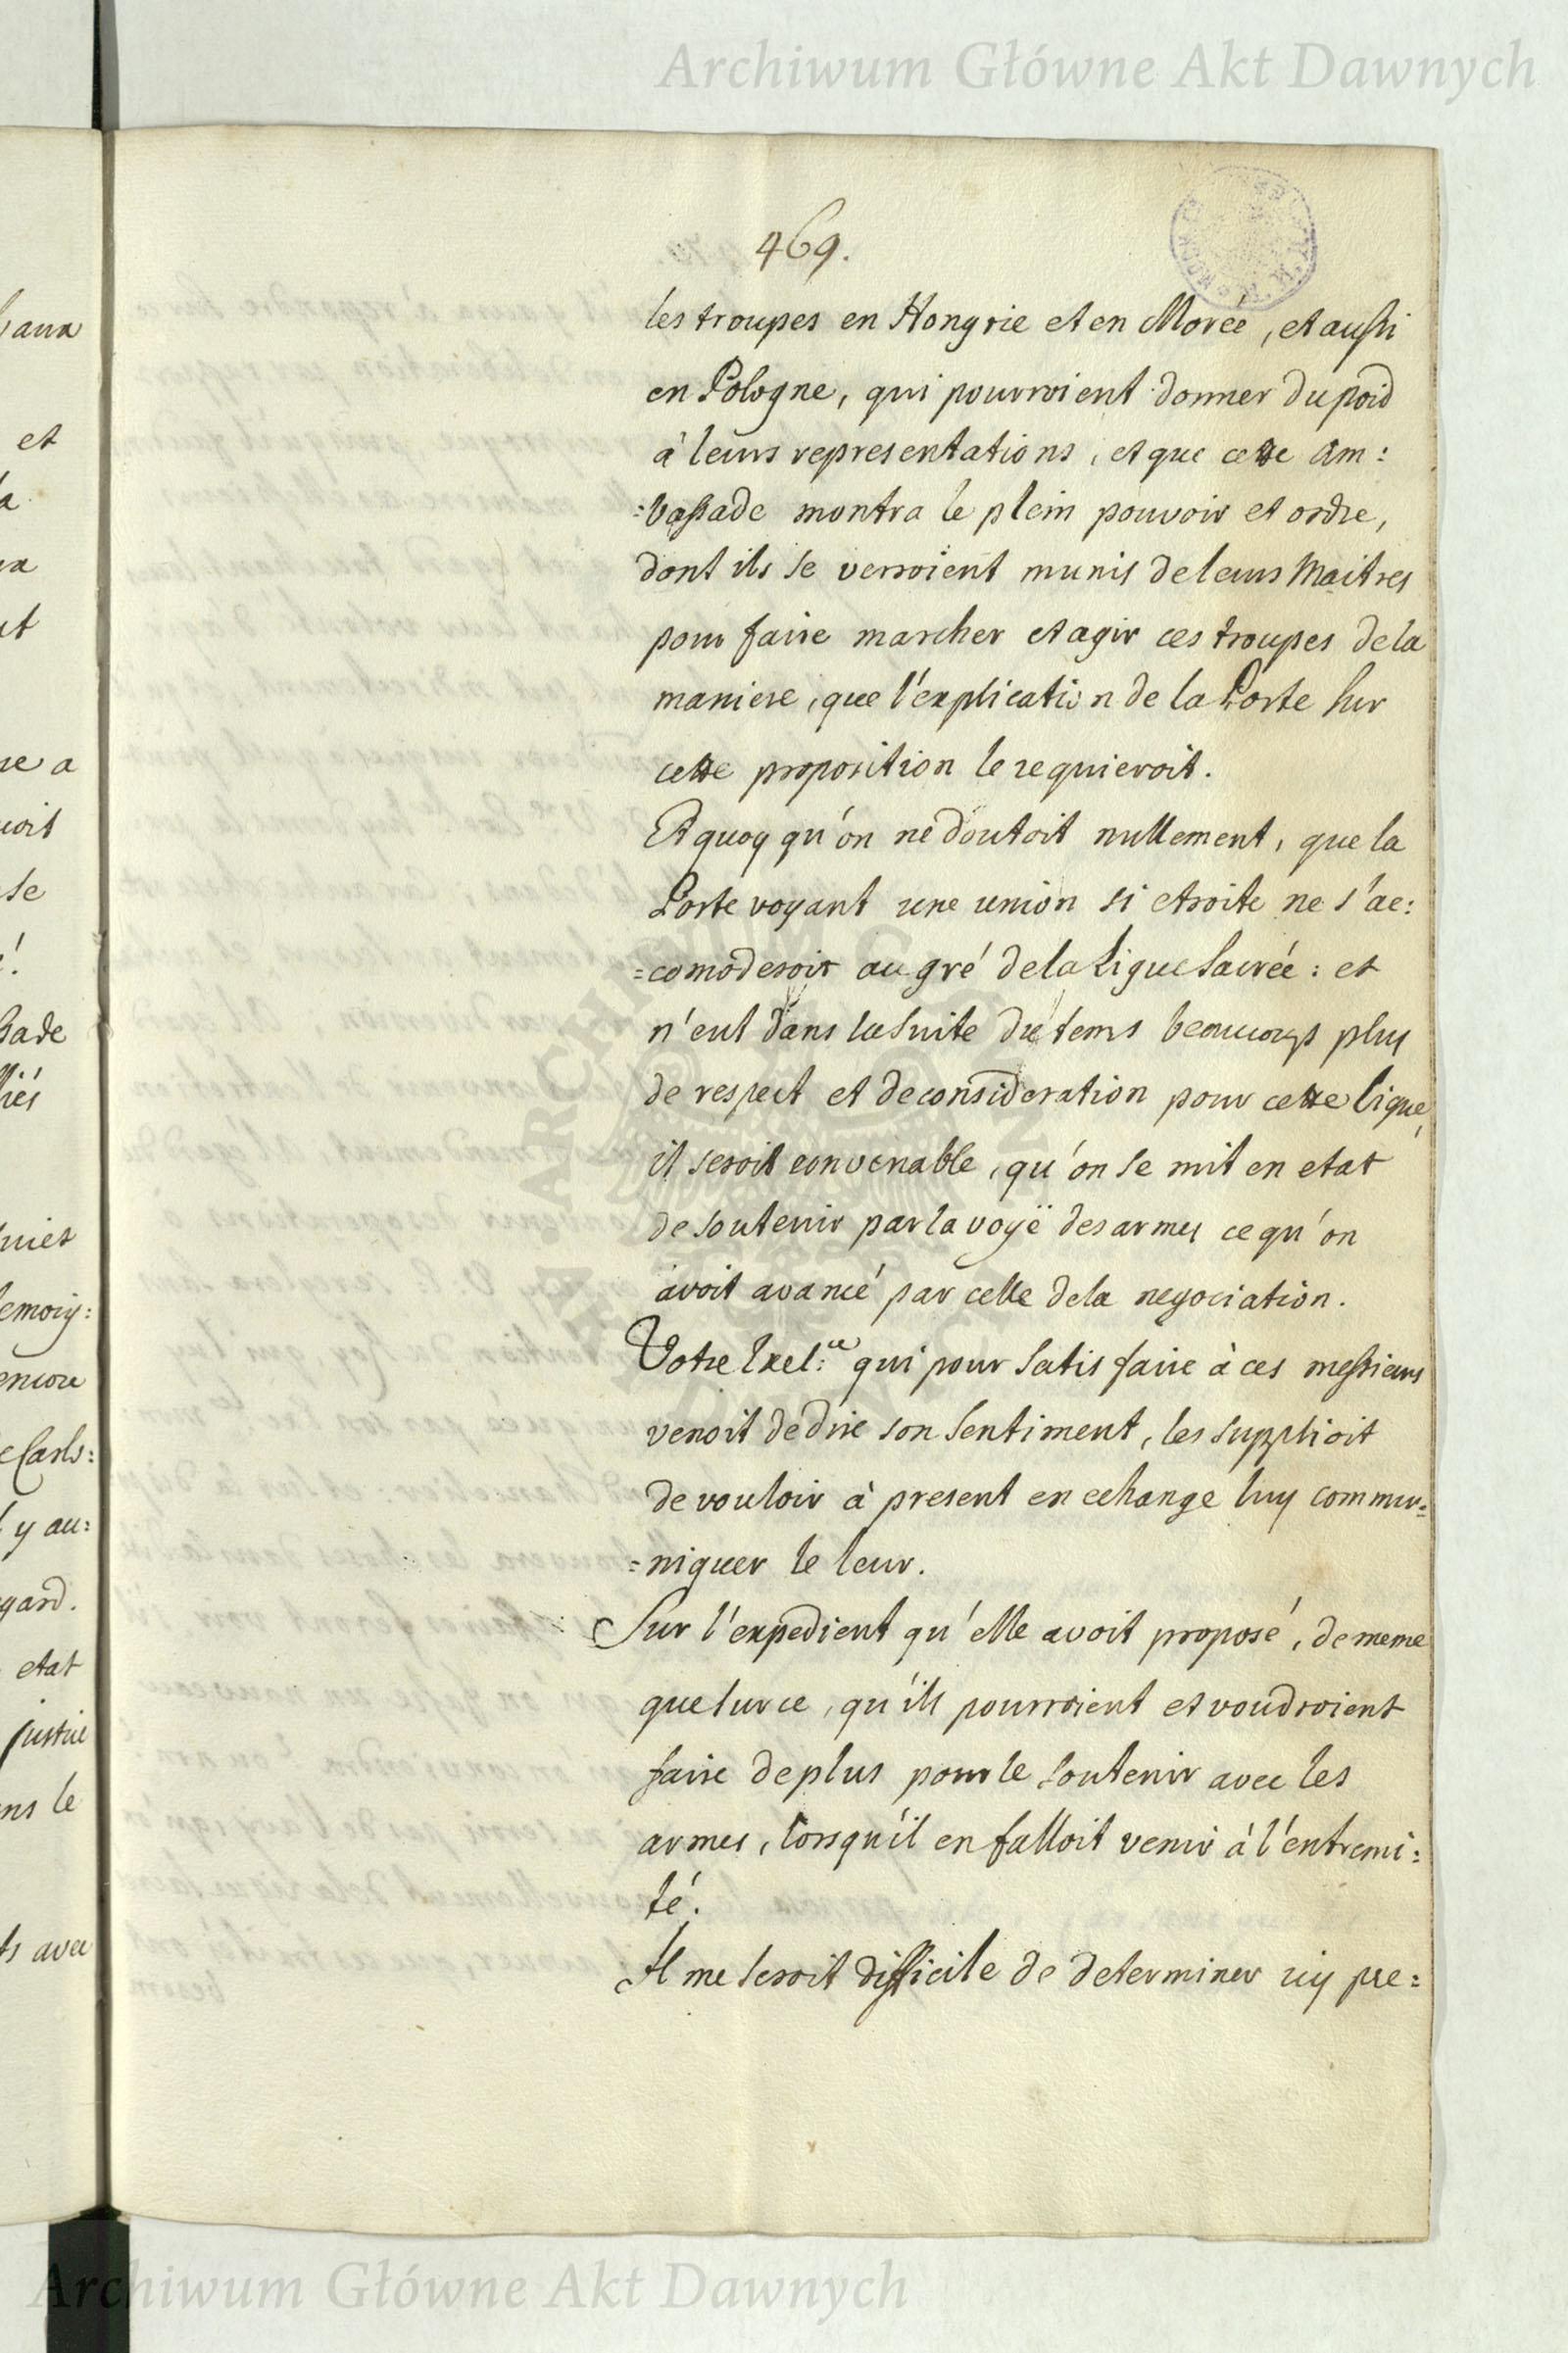 Archiwum Główne Akt Dawnych
469.
les troupes en Hongrie et en Morée, et aussi
en Pologne, qui pourroient donner du poid
à leurs representations, et que cette Am:
=bassade montra le plein pouvoir et ordre,
dont ils se verroient munis de leurs Maitres
pour faire marcher et agir ces troupes de la
maniere, que l'explication de la Porte sur
cette proposition le requieroit.
Et quoy qu'on ne doutoit nullement, que la
Porte voyant une union si etroite ne s'ac:
=comoderoit au gré de la Ligue Sacrée: et
n'eut dans la suite du tems beaucoup plus
de respect et de consideration pour cette ligue,
il seroit convenable, qu'on se mit en etat
de soutenir par la voyë des armes ce qu'on
avoit avancé par celle de la negociation.
Votre Exel:ce qui pour satisfaire à ces messieurs
venoit de dire son sentiment, les supplioit
de vouloir à present en echange luy commu=
=niquer le leur.
Sur l'expedient qu'elle avoit proposé, de meme
que sur ce, qu'ils pourroient et voudroient
faire de plus pour le soutenir avec les
armes, lorsqu'il en falloit venir à l'entremi:
té.
Il me seroit difficile de determiner icy pre=
baux
et
la
ut
re a
voit
se
bade
liés
emoig:
encore
Carls:
y au:
gard.
etat
justice
ns le
ts avec
Archiwum Główne Akt Dawnych